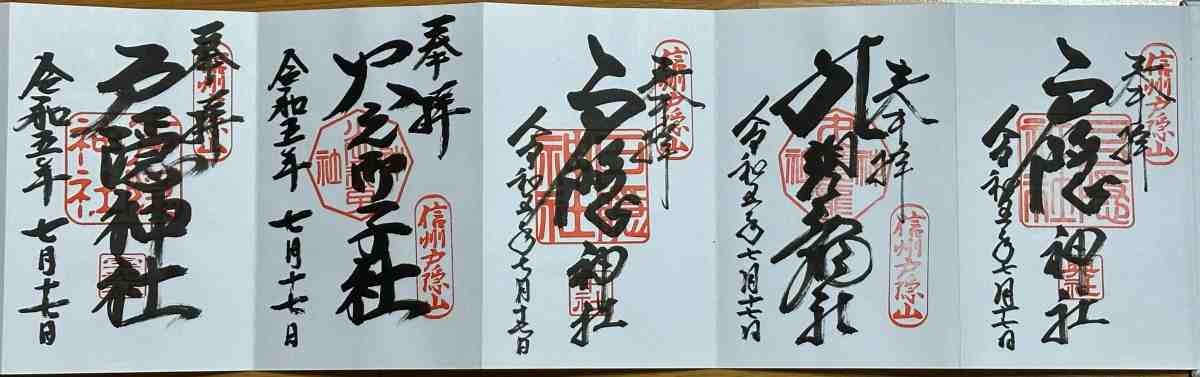 信州戸隠山
奉拝
戸隠神社
令和五年七月十七日
奉拝
信州戸隠山
九頭龍社
令和五年七月十七日
信州戸隠山
奉拝
戸隠神社
令和五年七月十七日
奉拝
信州戸隠山
火之御子社
令和五年 七月十七日
信州戸隠山
奉拝
戸隠神社
令和五年 七月十七日